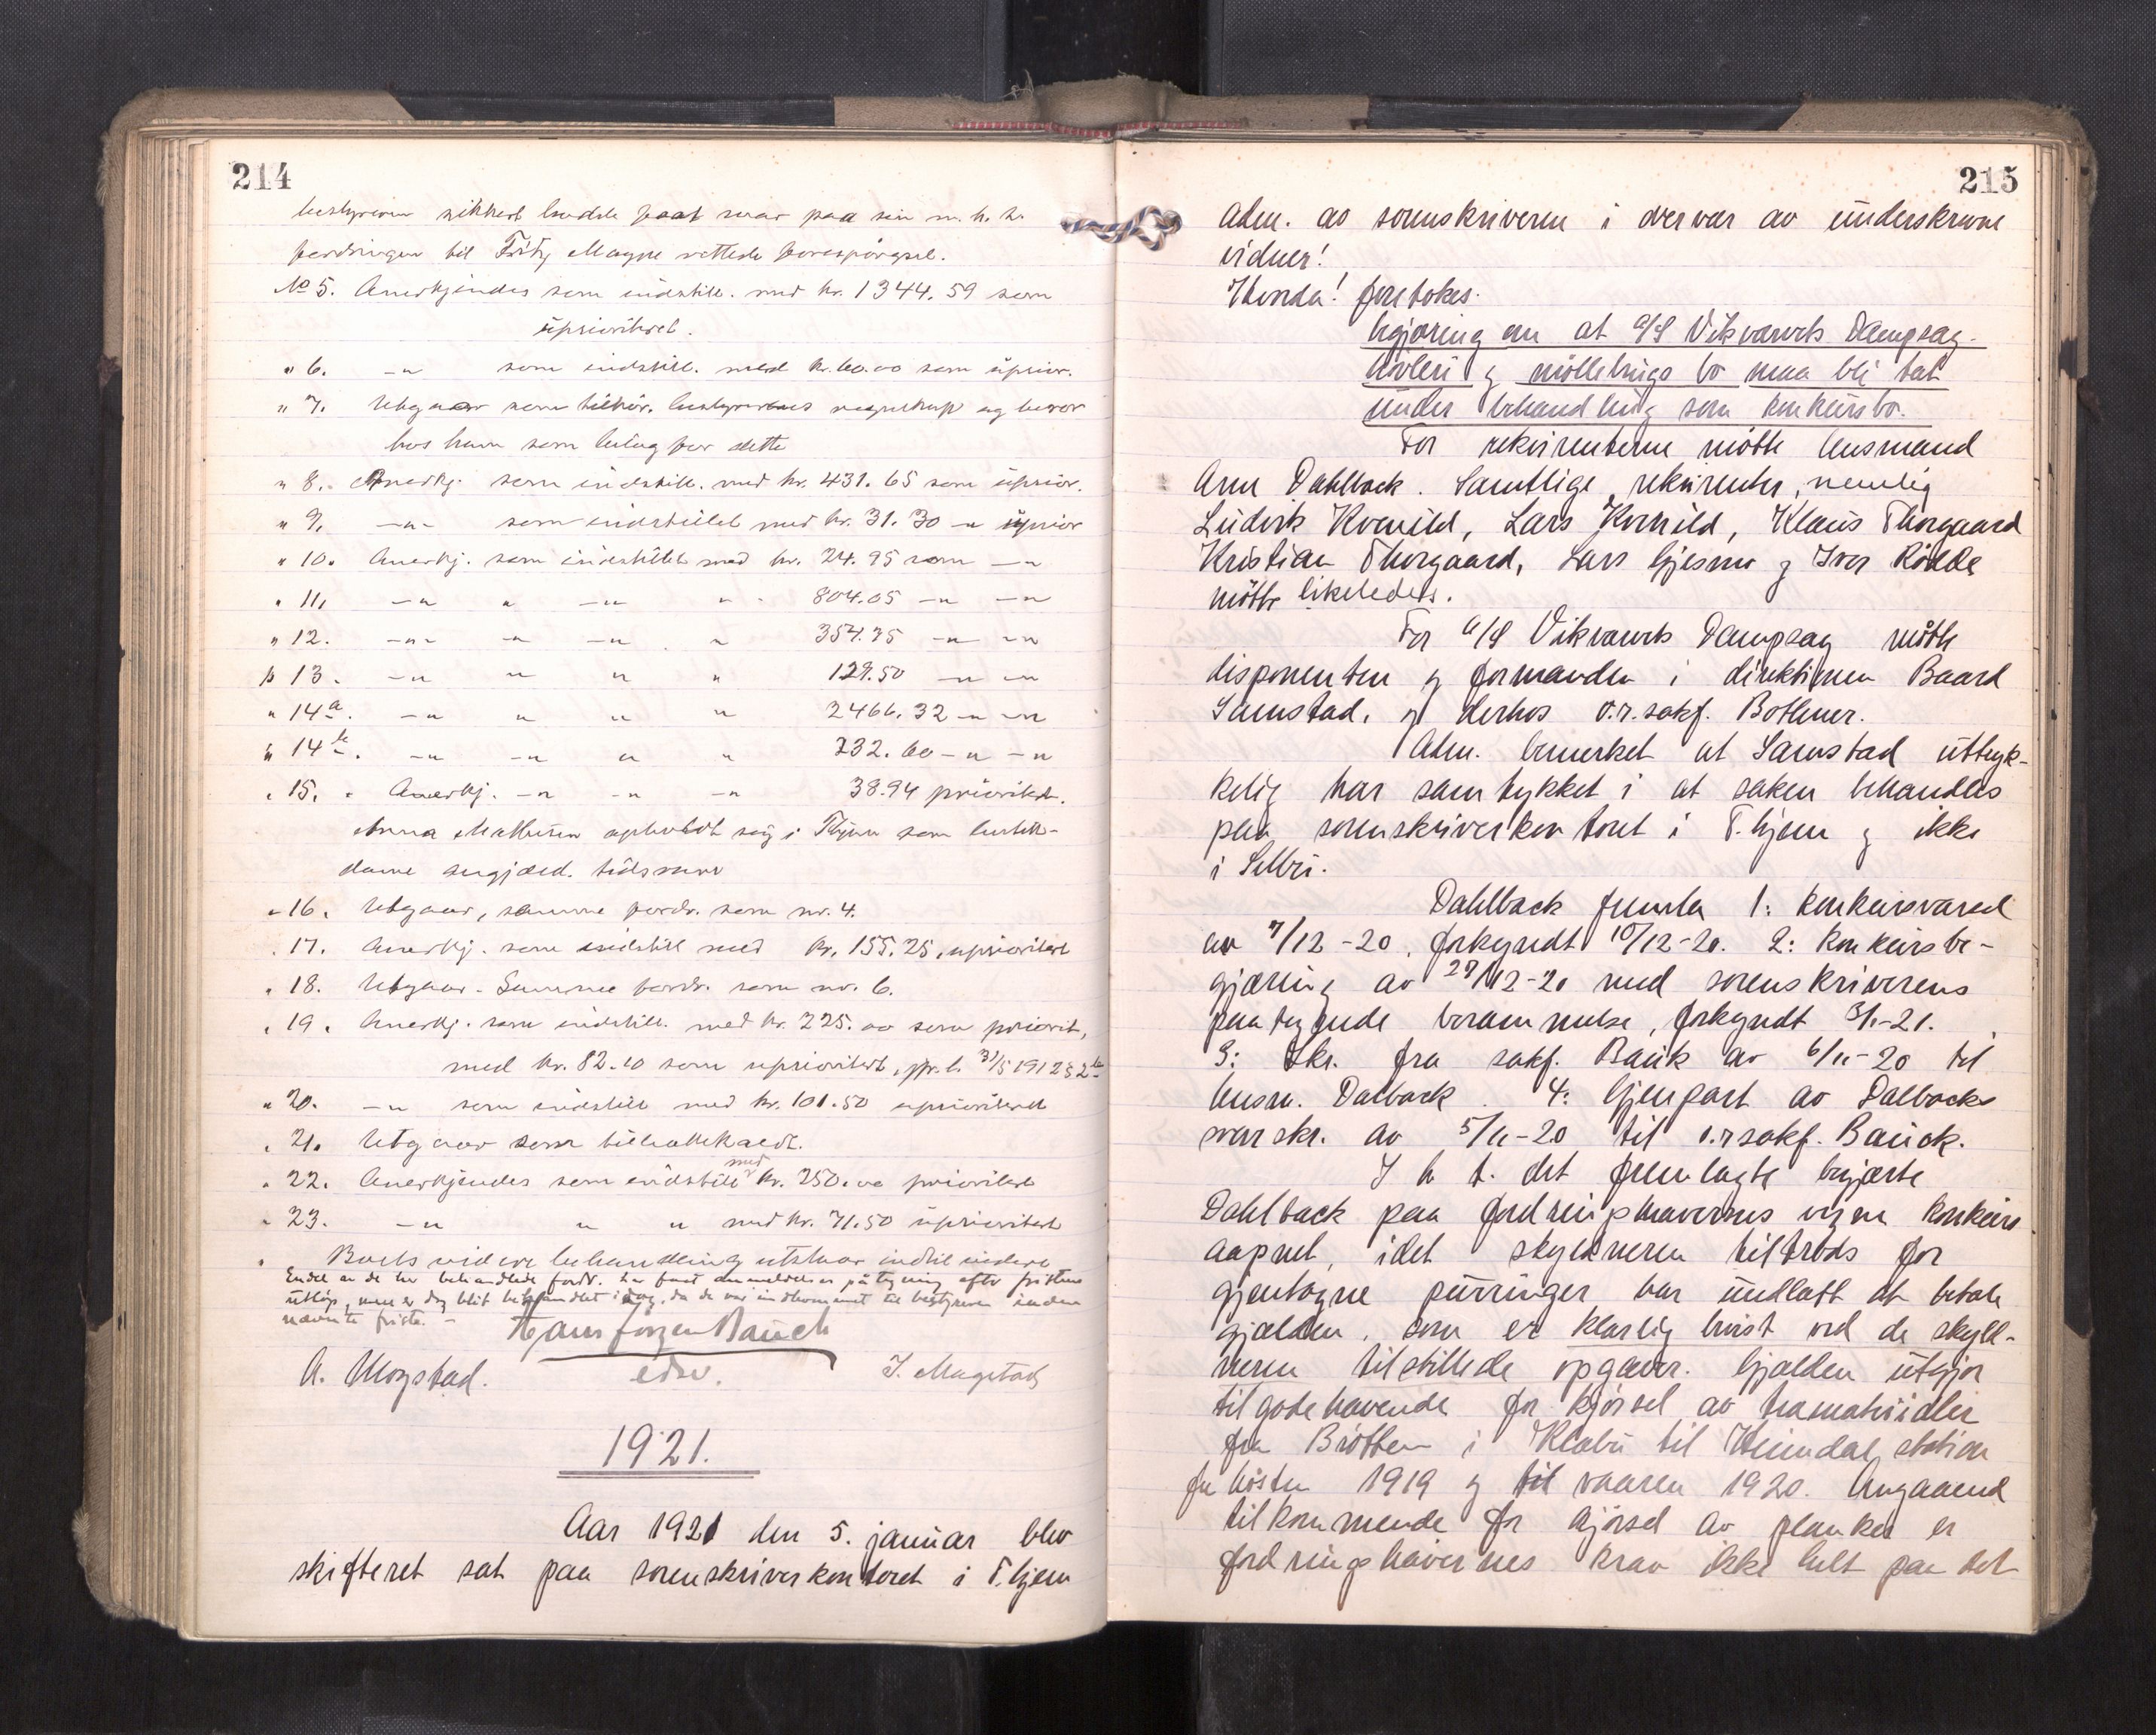 214
bestyreren sikkert hadde faat svar paa sin m. h. t.
fordringen til Fritz Magne rettede forespørgsel.
No 5. Anerkjendes som indstill. med kr. 1344.59 som
uprioritert.
" 6. -"- som indstill. med kr. 60.00 som uprior.
" 7. Utgaar som tilhør. bestyrerens regnskap og beror
hos ham som bilag for dette
" 8. Anerkj. som indstill. med kr. 431.65 som uprior.
" 9. -"- som indstillet med kr. 31.30 -" uprior
" 10. Anerkj. som indstillet med kr. 24.95 som -"
" 11. -" " -" " 804.05 -" -"
" 12. -"- -" -" " 354.75 -" -"
" 13. -" " " " 129.50 -" -"
" 14a. -" " " " 2466.32 -" -"
" 14b. -" -" " " 232.60 -" -"
" 15. Anerkj. -" -" -" 38.94 prioritert.
Anna Mathisen opholdt sig i Thjem som
dame angjæld. tidsrum
" 16. Utgaar, samme fordr. som nr. 4.
" 17. Anerkj. som indstill med kr. 155.25, uprioritert
" 18. Utgaar - Samme fordr. som nr. 6.
" 19. Anerkj. som indstill. med kr. 225.00 som priorit,
med kr. 82.10 som uprioritert, jfr. l. 31/5 1912 § 2
" 20. -" som indstill med kr. 101.50 uprioritert
" 21. Utgaar som tilbakekaldt.
" 22. Anerkjendes som indstill med kr. 250.00 prioritert
" 23. -" " " med kr. 71.50 uprioritert
Boets videre behandling utstaar indtil videre
Endel av de her behandlede fordr. har faat anmeldelses påtegning efter fristens
utløp, men er dog blit behandlet idag, da de var indkommet til bestyreren inden
nævnte friste. -
Hans Jørgen Bauck
A. Mogstad. edsv. J. Mogstad
1921.
Aar 1921 den 5. januar blev
skifteret sat paa sorenskriverkontoret i T.hjem
215
adm. av sorenskriveren i overvær av underskrevne
vidner!
Hvorda! foretokes.
begjæring om at A/S Vikvarvets Dampsag-
høvleri og møllebruks bo maa bli tat
under behandling som konkursbo.
For rekvirenterne møtte lensmand
Arne Dahlback. Samtlige rekvirenter, nemlig
Ludvik Kvenild, Lars Kvenild, Klaus Thorgaard
Kristian Thorgaard, Lars Gjesmo og Iver Rødde
møtte likeledes.
For A/S Vikvarvets Dampsag møtte
disponenten og formanden i direktionen Baard
Samstad, og derhos o.r.sakf. Bothner.
Adm. bemerket at Samstad uttryk-
kelig har samtykket i at saken behandles
paa sorenskriverkontoret i T.hjem og ikke
i Selbu.
Dahlback fremla 1: konkursvarsel
av 7/12-20, forkyndt 10/12-20. 2: Konkursbe-
gjæring av 27/12-20 med sorenskriverens
paategnede berammelse, forkyndt 3/1-21.
3: Skr. fra sakf. Bauk av 6/11-20 til
lensm. Dalback. 4: Gjenpart av Dalbacks
svarskr. av 5/11-20 til o.r.sakf. Bauck.
I h. t. det fremlagte begjærte
Dahlback paa fordringshavernes vegne konkurs
aapnet, idet skyldneren tiltrods for
gjentagne purringer har undlatt at betale
gjælden, som er klarlig bevist ved de skyld-
neren tilstillede opgaver. Gjælden utgjør
tilgodehavende for kjørsel av træmaterialier
fra Brøttem i Klæbu til Heimdal station
fra høsten 1919 og til vaaren 1920. Angaaend
tilkommende for kjørsel av planker er
fordringshavernes krav ikke helt paa det